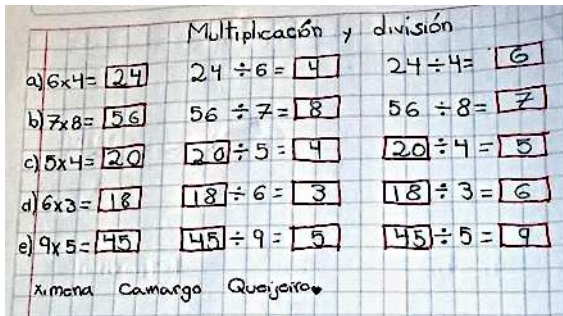 Multiplicación y división
a) 6x4= 24 24 ÷ 6 = 4 24 ÷ 4= 6
b) 7x8= 56 56 ÷ 7 = 8 56 ÷ 8= 7
c) 5x4= 20 20 ÷ 5 = 4 20 ÷ 4 = 5
d) 6x3= 18 18 ÷ 6 = 3 18 ÷ 3 = 6
e) 9x5= 45 45 ÷ 9 = 5 45 ÷ 5 = 9
Ximena Camargo Queijeiro